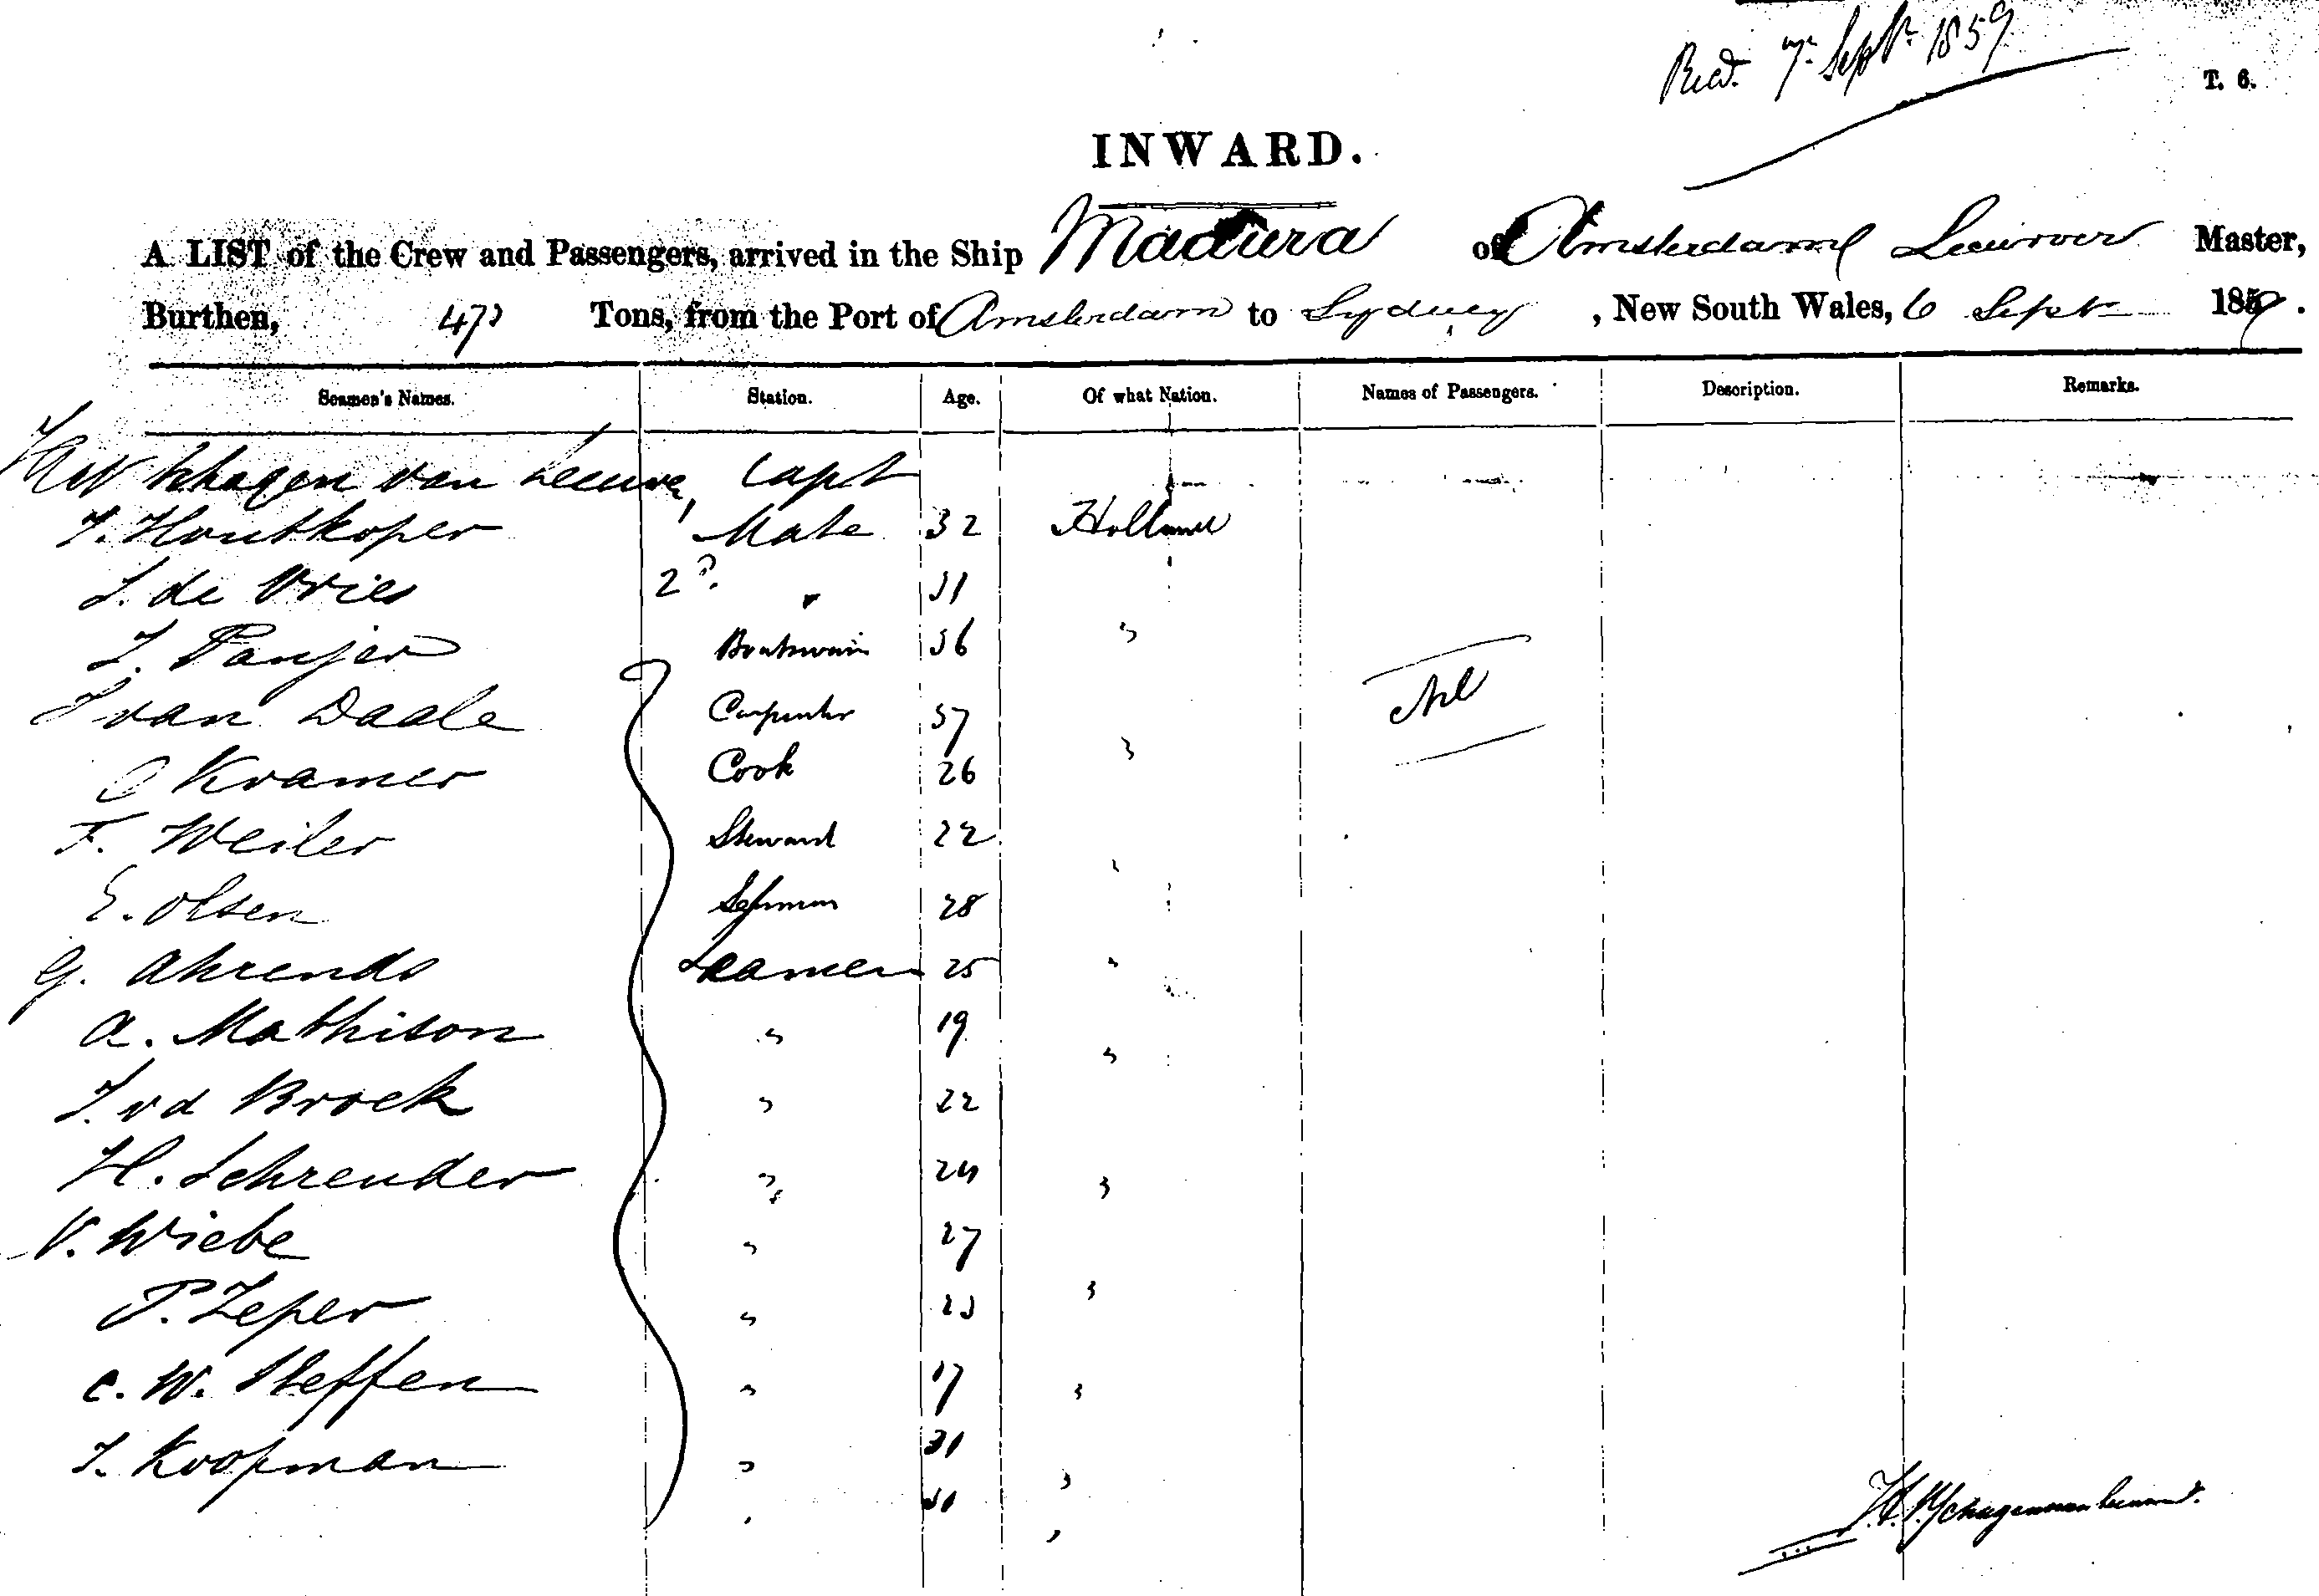 Recd. 7 Septr. 1859
T. 6.
INWARD.
A LIST of the Crew and Passengers, arrived in the Ship Madura of Amsterdam Master,
Burthen, 473 Tons, from the Port of Amsterdam to Sydney, New South Wales, 6 Sept 1859.
Seamen's Names. Station. Age. Of what Nation. Names of Passengers. Description. Remarks.
Schagen van Leeuwen Capt
J. Houtkoper Mate 32 Holland
J. de Vries 2d. " 31
J. Panjer Boatswain 36 "
J van Daale Carpenter 37
C Kramer Cook 26 "
F. Weiler Steward 22
E. Olsen 28 "
G. Ahrends Seamen 25 "
A. Mathison " 19 "
J. vd Broek " 22
H. Schreuder " 24 "
V. Wiebe " 27
P. Zeper " 23 "
C. W. Steffen " 17 "
J. Koopman " 31 "
" 31 "
Nil
Schagen van Leeuwen